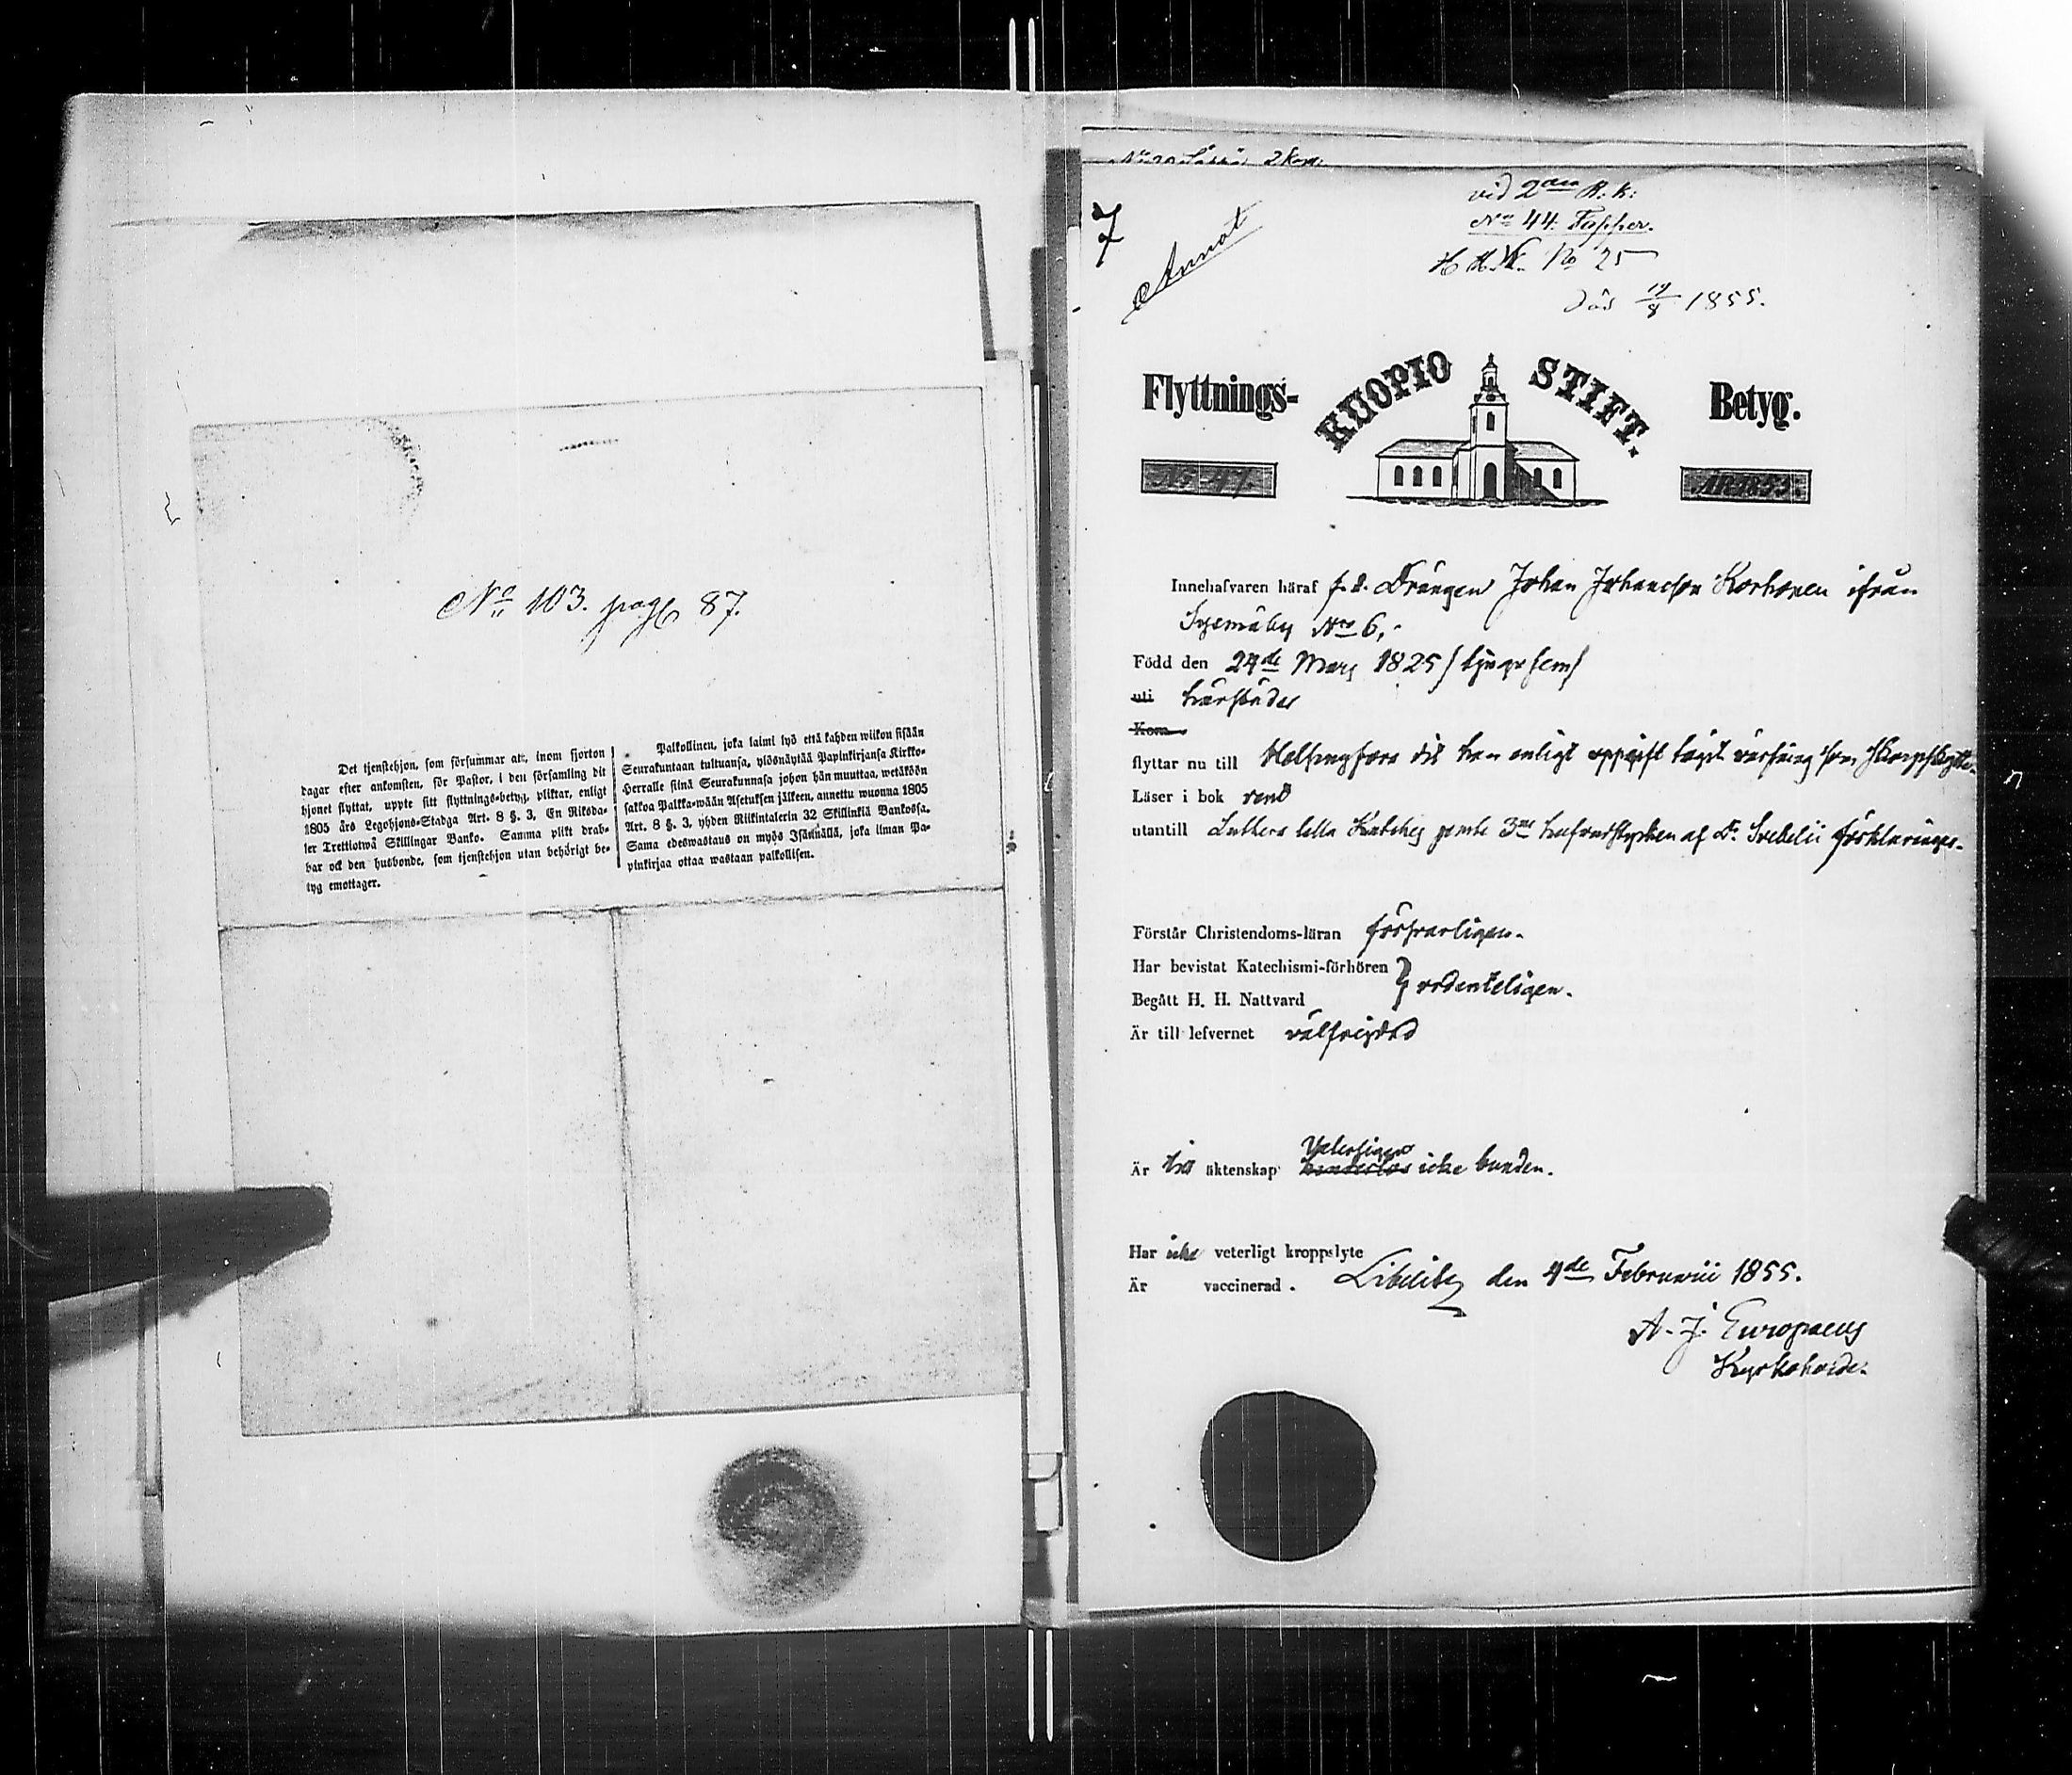 No 103. pag 87.
Det tjenstehjon, som försummar att, inom fjorton
dagar efter ankomsten, för Pastor, i den församling dit
hjonet flyttat, uppte sitt flyttnings-betyg, pliktar, enligt
1805 års Legohjons-Stadga Art. 8 §. 3, En Riksda-
ler Trettiotwå Skillingar Banko. Samma plikt drab-
bar ock den husbonde, som tjenstehjon utan behörigt be-
tyg emottager.
Palkollinen, joka laimi lyö että kahden wiikon sisään
Seurakuntaan tultuansa, ylösnäytää Papinkirjansa Kirkko-
Herralle siinä Seurakunnasa johon hän muuttaa, wetäköön
sakkoa Palkka-wään Asetuksen jälkeen, annettu wuonna 1805
Art. 8 §. 3, yhden Riikintalerin 32 Skillinkiä Bankossa.
Sama edeswastaus on myös Isännällä, joka ilman Pa-
pinkirjaa ottaa wastaan palkollisen.
2 Kom.
7
Annot
vid 2dra R. K:
No 44: Tapper.
No 25
död 19/8 1855.
Flyttnings- KUOPIO STIFT. Betyg.
No 47. ÅR 1855.
Innehafvaren häraf f. d. Drängen Johan Johansson Korhonen ifrån
No 6,
Född den 24de Mars 1825 / tjugufem /
uti härstädes
Kom
flyttar nu till Helsingfors dit han enligt uppgift tagit värfning som skarpskytte.
Läser i bok rent
utantill Luthers lilla Kateches jemte 3ne hufvudstycken af Dr. Svebelii förklaringar.
Förstår Christendoms-läran försvarligen.
Har bevistat Katechismi-förhören
Begått H. H. Nattvard } ordenteligen.
Är till lefvernet välfrejdad
Är till äktenskap Veterligen hinderlös icke bunden.
Har icke veterligt kroppslyte
Är vaccinerad. Libelitz den 4de Februarii 1855.
A. J. Europaeus
Kyrkoherde.